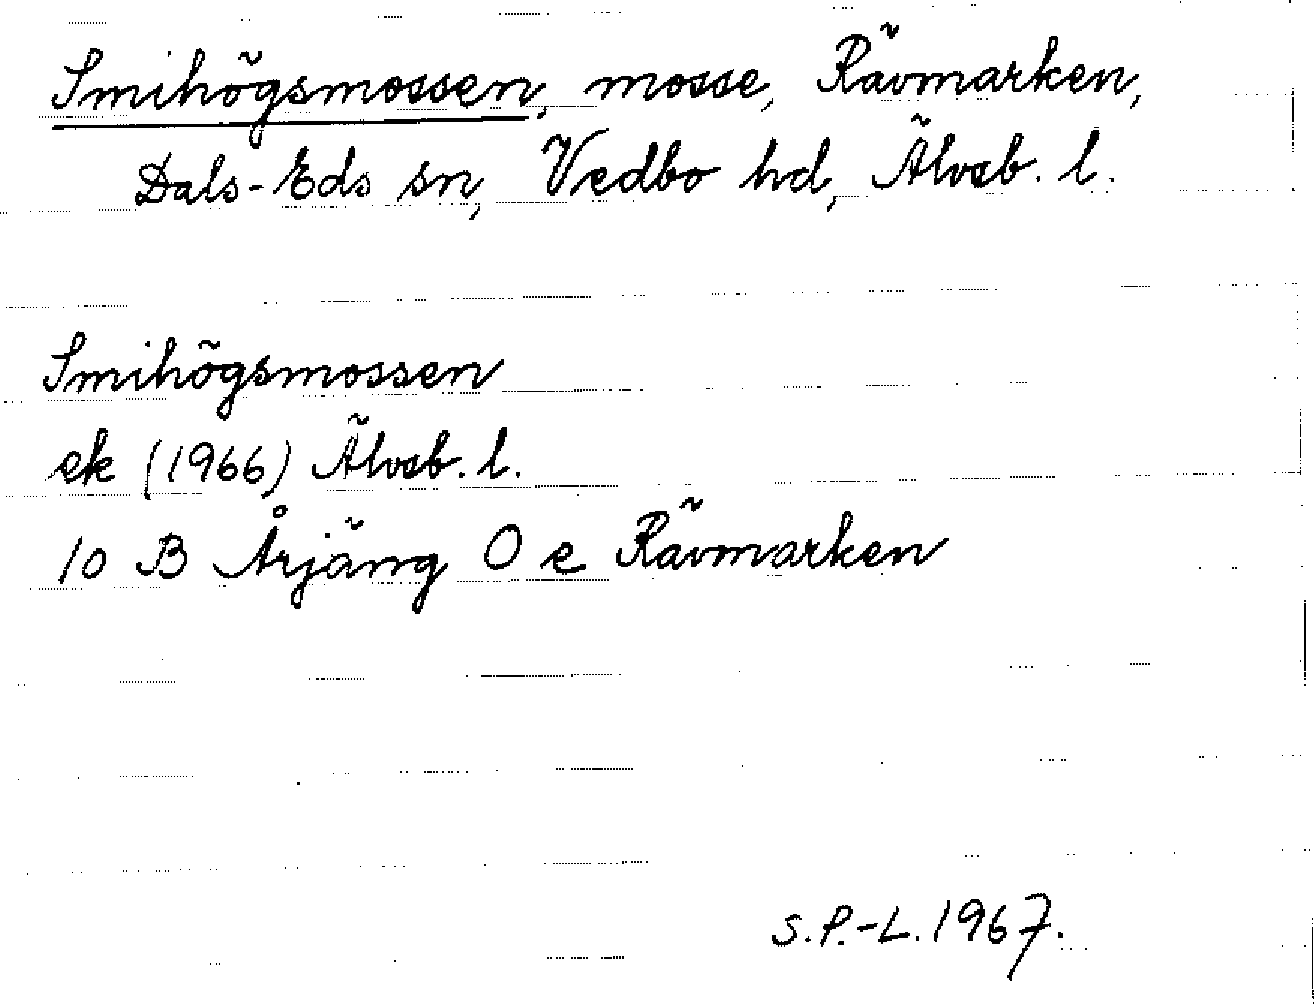 Smihögsmossen, mosse, Rävmarken,
Dals-Eds sn, Vedbo hd, Älvsb. l.
Smihögsmossen
ek (1966) Älvsb. l.
10 B Årjäng 0 e Rävmarken
S.P.-L. 1967.